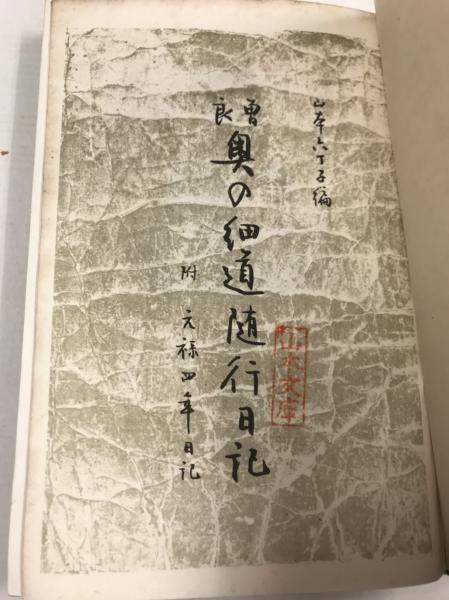 山本六丁子編
曽良
奥の細道随行日記
附 元禄四年日記
山水文庫